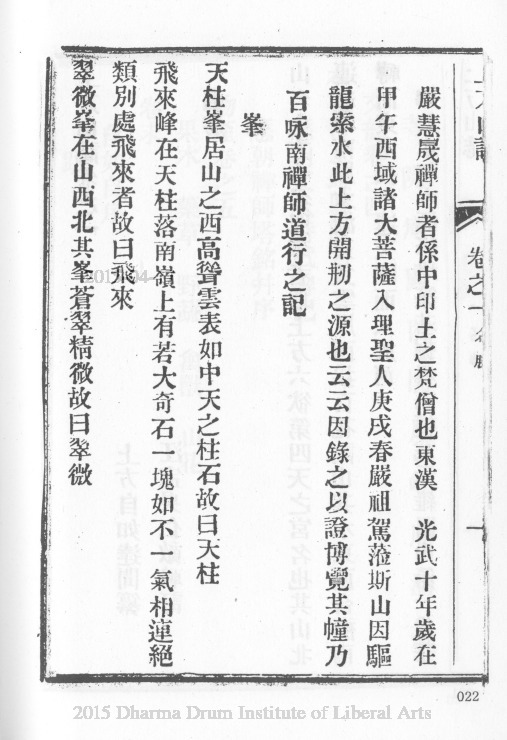 上方山誌
卷之一 名勝
一
嚴慧晟禪師者係中印土之梵僧也東漢　光武十年歲在
甲午西域諸大菩薩入理聖人庚戌春嚴祖駕蒞斯山因驅
龍索水此上方開刱之源也云云因錄之以證博覽其幢乃
百咏南禪師道行之記
峯
天柱峯居山之西高聳雲表如中天之柱石故曰天柱
飛來峰在天柱落南嶺上有若大奇石一塊如不一氣相連絕
類別處飛來者故曰飛來
翠微峯在山西北其峯蒼翠精微故曰翠微
022
2015 Dharma Drum Institute of Liberal Arts